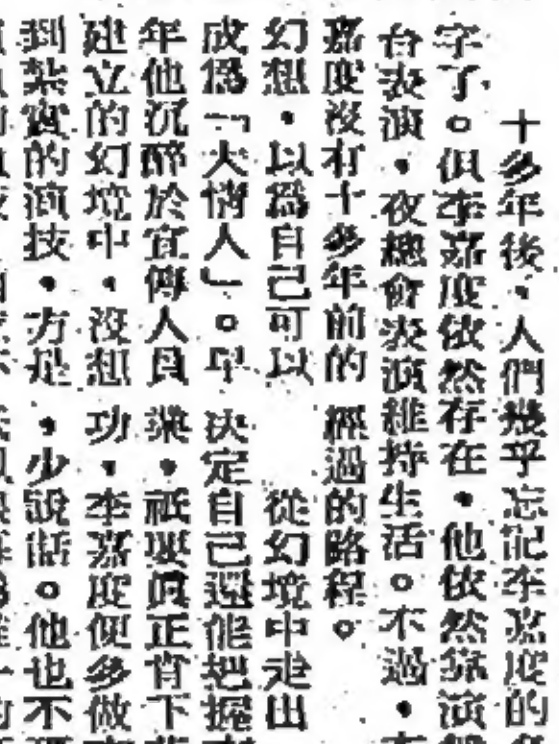 十多年後，人們幾乎忘記李嘉度的
字了。但李嘉度依然存在，他依然靠演
台表演，夜總會表演維持生活。不過，
嘉度沒有十多年前的
幻想，以為自己可以
成為「大情人」。早
年他沉醉於宣傳人員
建立的幻境中，沒想
到紮實的演技，方是
經過的路程。
從幻境中走出
決定自己還能把握
業，祇要真正肯下
功，李嘉度便多做
，少說話。他也不